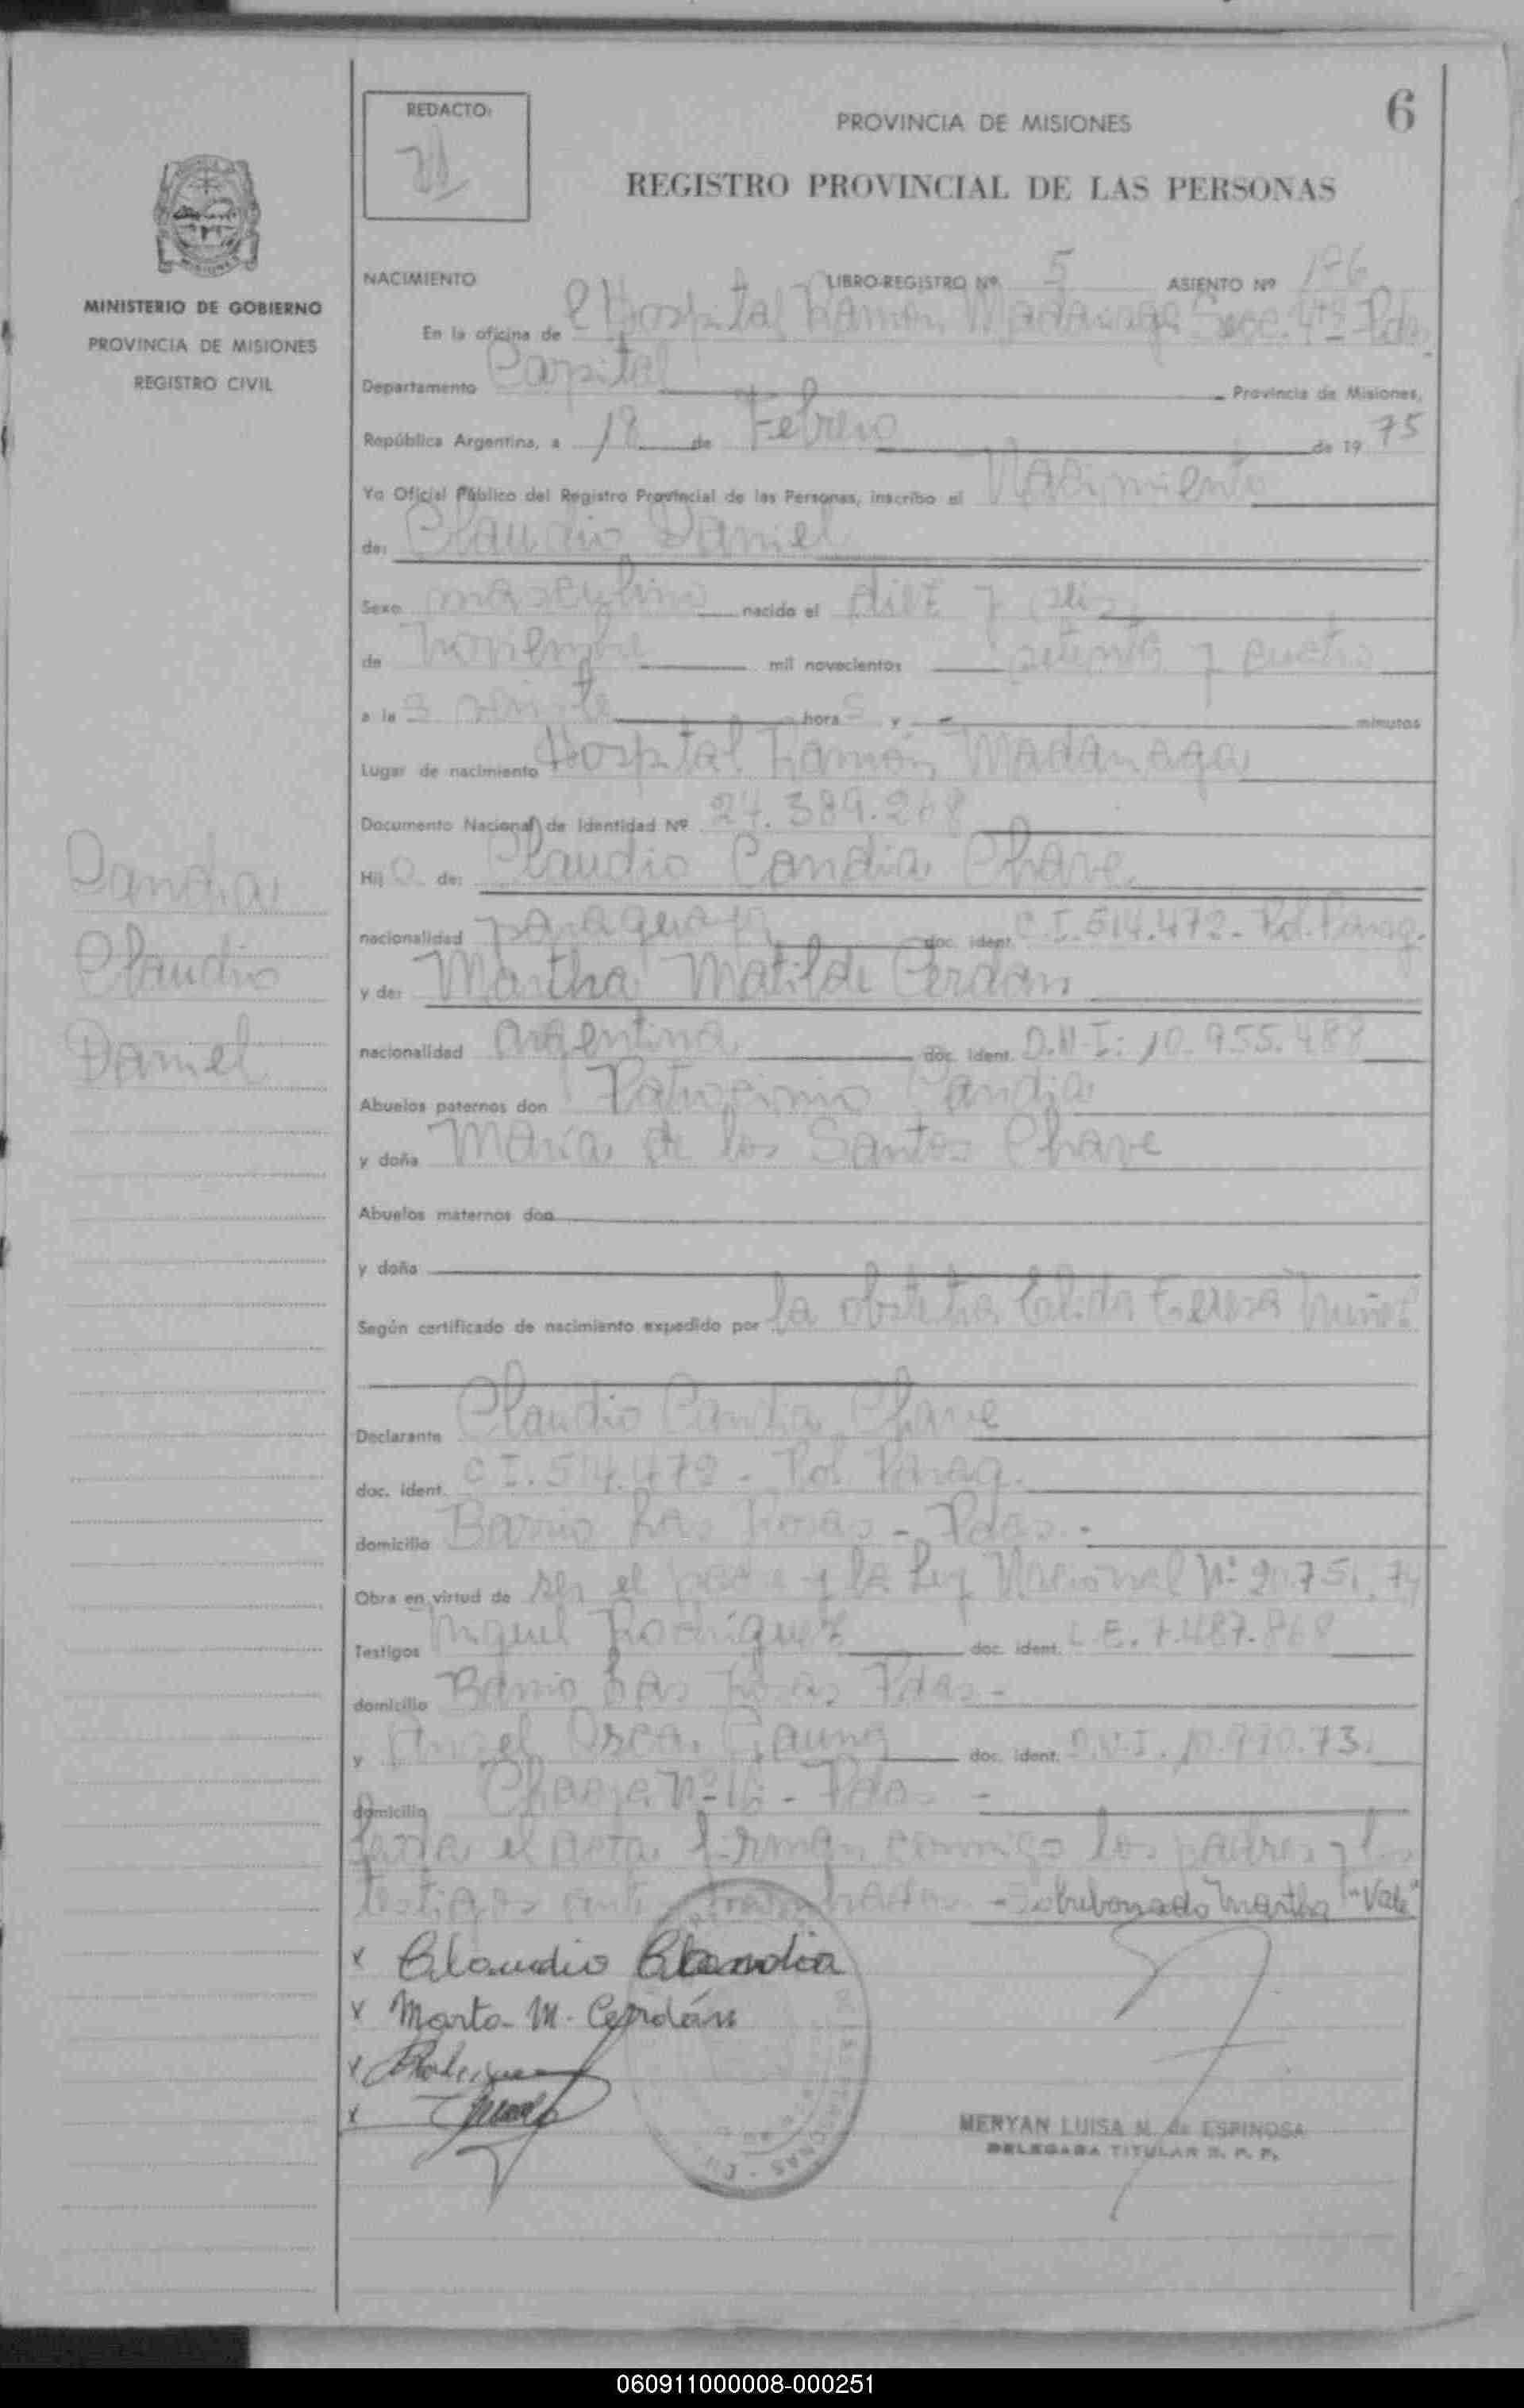 6
REDACTO:
PROVINCIA DE MISIONES
REGISTRO PROVINCIAL DE LAS PERSONAS
MINISTERIO DE GOBIERNO
PROVINCIA DE MISIONES
REGISTRO CIVIL
NACIMIENTO LIBRO-REGISTRO Nº 5 ASIENTO Nº 196
En la oficina de l Hospital Ramón Madariaga Secc. 4ta Pdas
Departamento Capital Provincia de Misiones,
República Argentina, a 18 de Febrero de 19 75
Yo Oficial Público del Registro Provincial de las Personas, inscribo el Nacimiento
de: Claudio Daniel
Sexo masculino nacido el diez y seis
de noviembre mil novecientos setenta y cuatro
a las veinte hora s y - minutos
Lugar de nacimiento Hospital Ramón Madariaga
Documento Nacional de Identidad Nº 24.389.268
Hij o de: Claudio Candia Chave
nacionalidad paraguaya doc. ident. C.I. 514.472 - Pol. Parag.
y de: Martha Matilde Cerdán
nacionalidad argentina doc. ident. D.N.I: 10.955.488
Abuelos paternos don Patrocinio Candia
y doña María de los Santos Chave
Abuelos maternos don
y doña
Según certificado de nacimiento expedido por la obstetra Teresa Nuñez
Declarante Claudio Candia Chave
doc. ident. C.I. 514.472 - Pol. Parag.
domicilio Barrio Las Rosas - Pdas. -
Obra en virtud de ser el padre y la Ley Nacional Nº 20.751.74
Testigos Miguel Rodríguez doc. ident. L.E. 7.487.868
domicilio Barrio Las Rosas Pdas -
y Angel Oscar Gauna doc. ident. D.N.I.
domicilio Chacra Nº 16 - Pdas -
Leída el acta firman conmigo los padres y los
testigos ante nombrados - Sobreborrado "Martha" "Vale"
Candia
Claudio
Daniel
x Claudio Candia
x Marta M. Cerdán
x Rodriguez
x
MERYAN LUISA M. de ESPINOSA
DELEGADA TITULAR R. P. P.
060911000008-000251